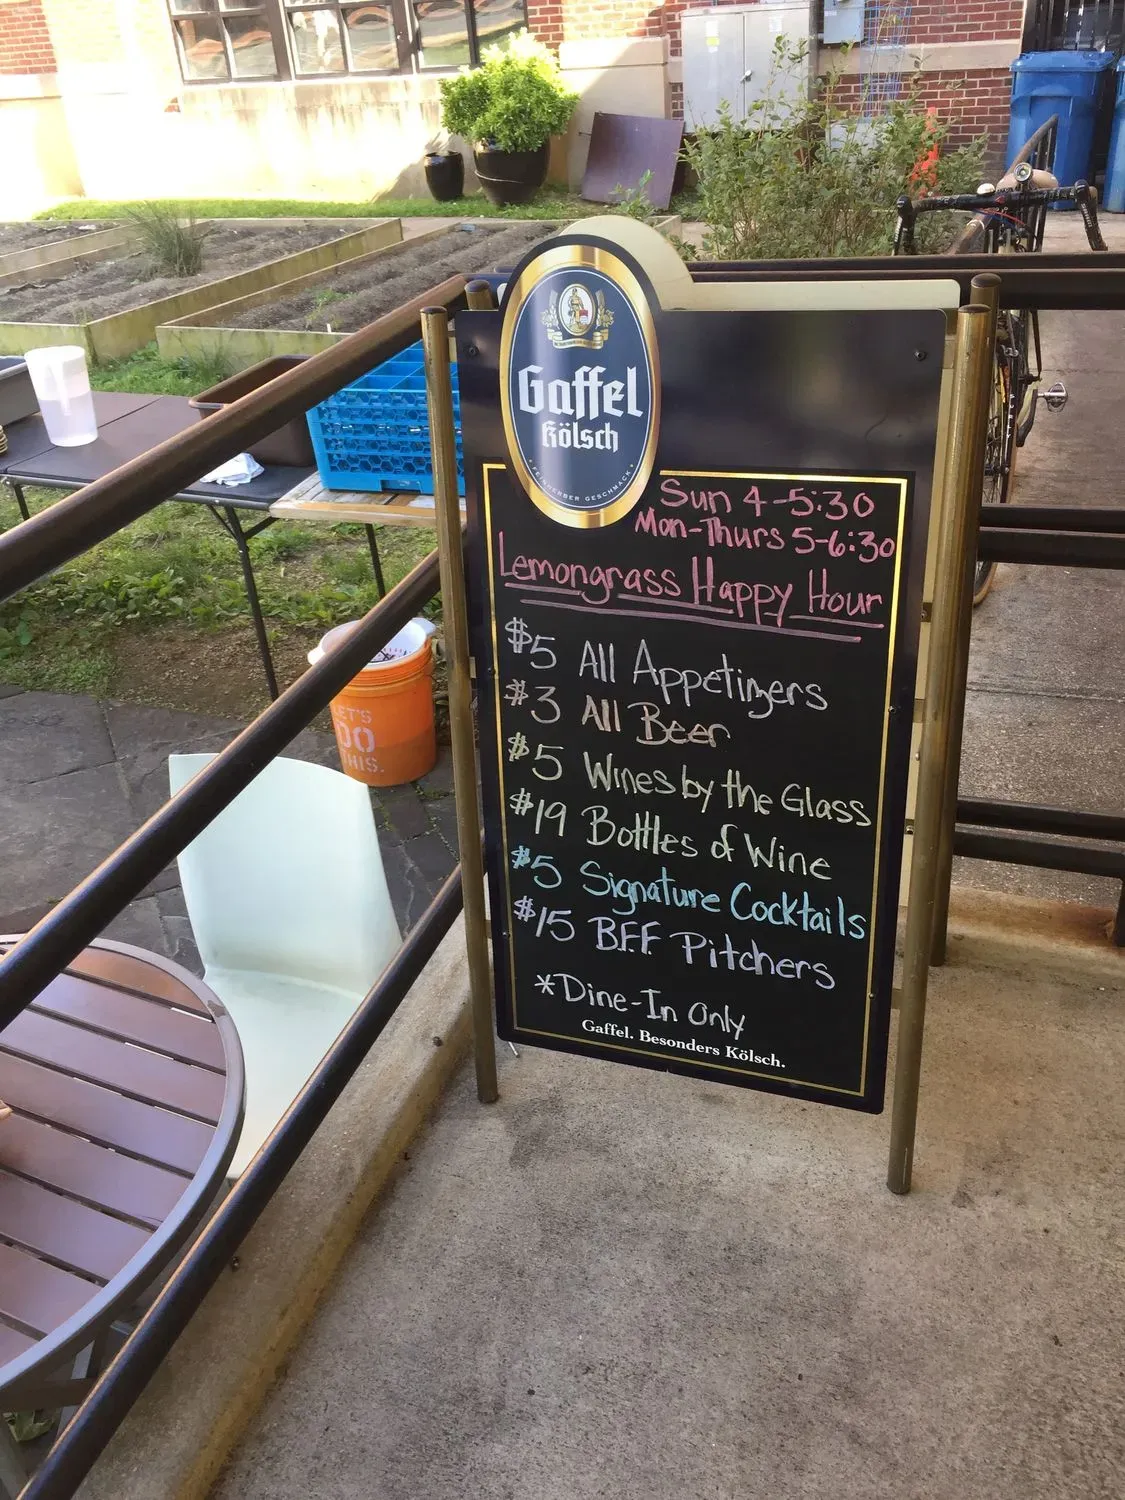 Gaffel
Kölsch
FEINHERBER GESCHMACK
Sun 4-5:30
Mon-Thurs 5-6:30
Lemongrass Happy Hour
$5 All Appetizers
$3 All Beer
$5 Wines by the Glass
$19 Bottles of Wine
$5 Signature Cocktails
$15 B.F.F. Pitchers
*Dine-In Only
Gaffel. Besonders Kölsch.
LET'S
DO
THIS.